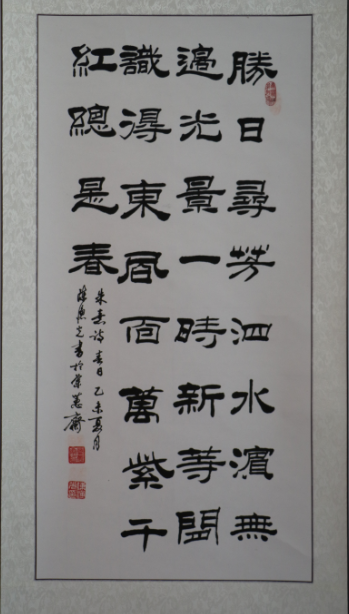 勝日尋芳泗水濱無
邊光景一時新等閒
識得東風面萬紫千
紅總是春
朱熹詩春日乙未夏月
書於齋